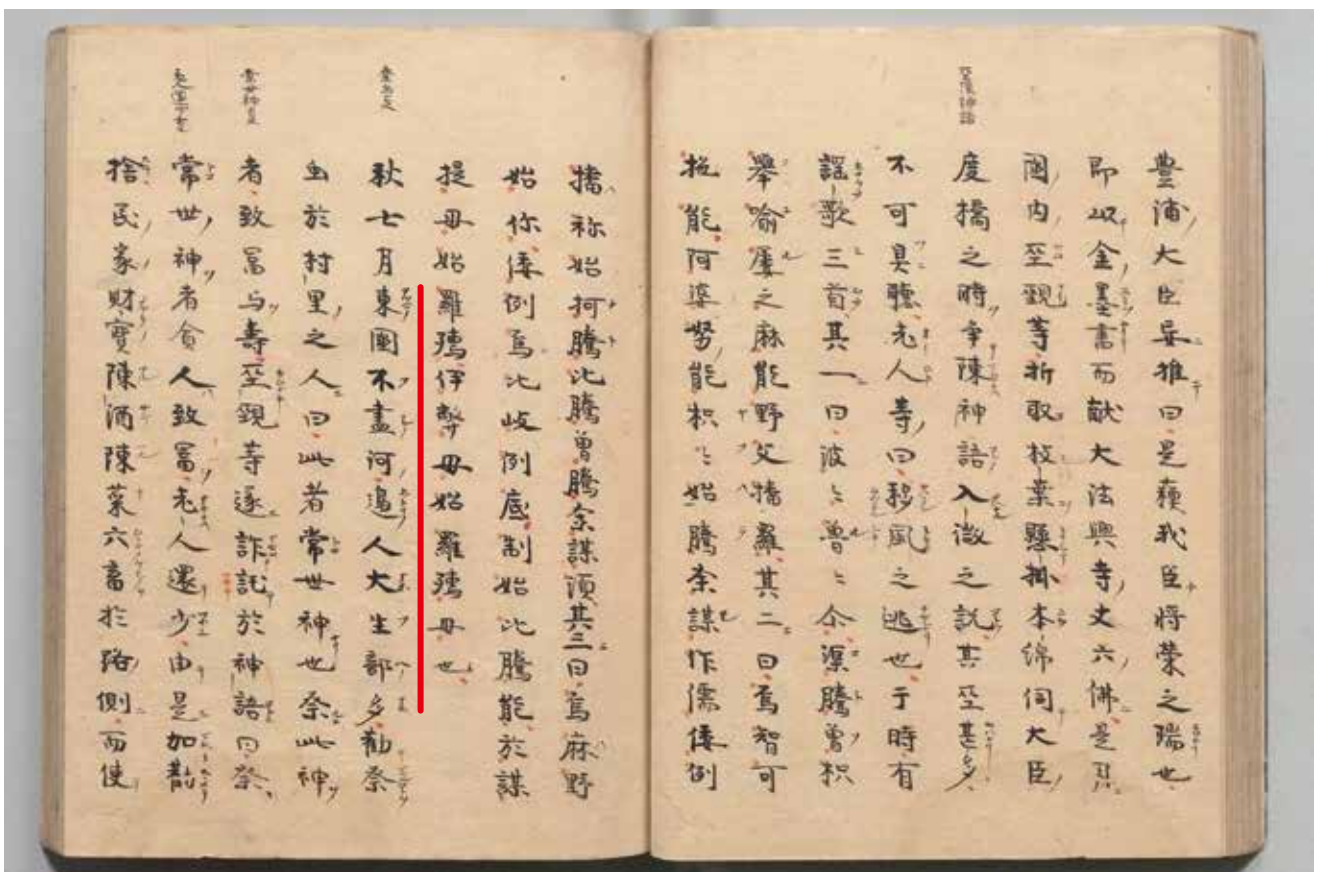 豊浦大臣妄推曰是蘓我臣將榮之瑞也
即以金墨書而献大法興寺丈六佛是月
國内巫覡等折取枝葉懸掛木綿伺大臣
度橋之時争陳神語入微之説其巫甚多
不可具聴老人等曰移風之兆也于時有
謡歌三首其一曰波々魯々尒渠騰曾枳
擧喩屡之麻能野父播羅其二曰烏智可
拕能阿婆努能枳々始騰余謀作儒倭例
播祢始柯騰比騰曾騰余謀須其三曰烏麻野
始你倭例烏比岐例底制始比騰能於謀
提母始羅孺伊弊母始羅孺母也
秋七月東國不盡河邊人大生部多勸祭
虫於村里之人曰此者常世神也祭此神
者致冨与壽巫覡等遂詐託於神語曰祭
常世神者貧人致冨老人還少由是加勸
捨民家財寳陳酒陳菜六畜於路側而使